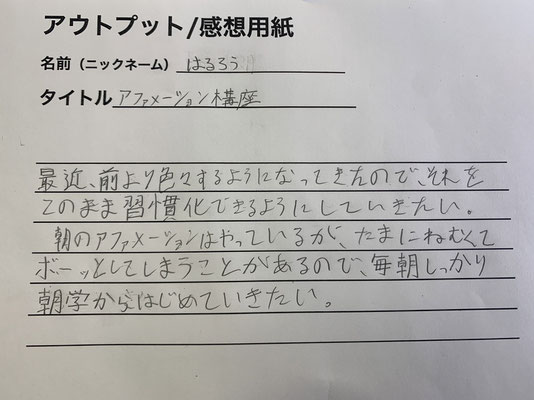 アウトプット/感想用紙
名前（ニックネーム） はるろう
タイトル アファメーション講座
最近、前より色々するようになってきたので、それを
このまま習慣化できるようにしていきたい。
朝のアファメーションはやっているが、たまにねむくて
ボーッとしてしまうことがあるので、毎朝しっかり
朝学からはじめていきたい。